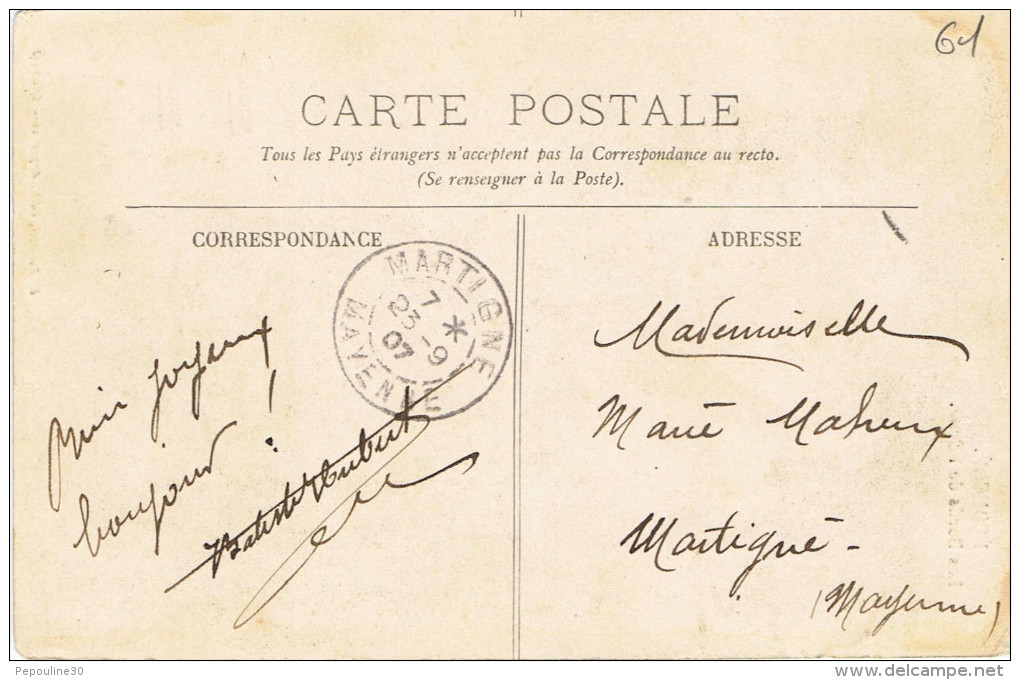 61
CARTE POSTALE
Tous les Pays étrangers n'acceptent pas la Correspondance au recto.
(Se renseigner à la Poste).
CORRESPONDANCE
ADRESSE
MARTIGNE
7
23 -9
07
MAYENNE
*
joyeux
bonjour !
Mademoiselle
Marie Maheux
Martigné -
(Mayenne)
Pepouline30
www.delcampe.net